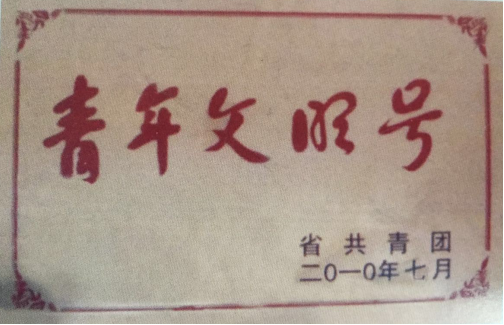 青年文明号
省共青团
二〇一〇年七月